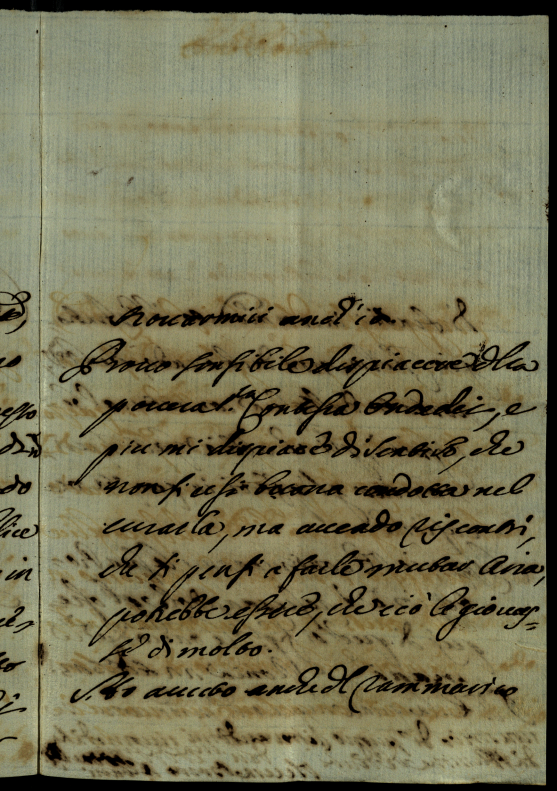 trovarmici anch'io.
Provo sensibile dispiacere della
povera S.ra Contessa Bndedei, e
piu mi dispiace di sentire, che
non si usi buona condotta nel
curarla, ma avendo riscontri,
che si pensi a farle mutar Aria,
potrebbe essere, che ciò le giovas=
se di molto.
Sto avuto anche del rammarico